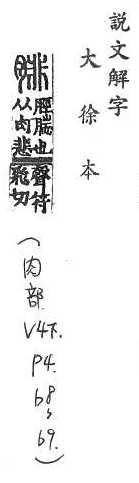 說文解字
大徐本
腓 脛腨也
从肉非
聲符
飛切
(肉部.
V4下.
P4.
68,
69.)